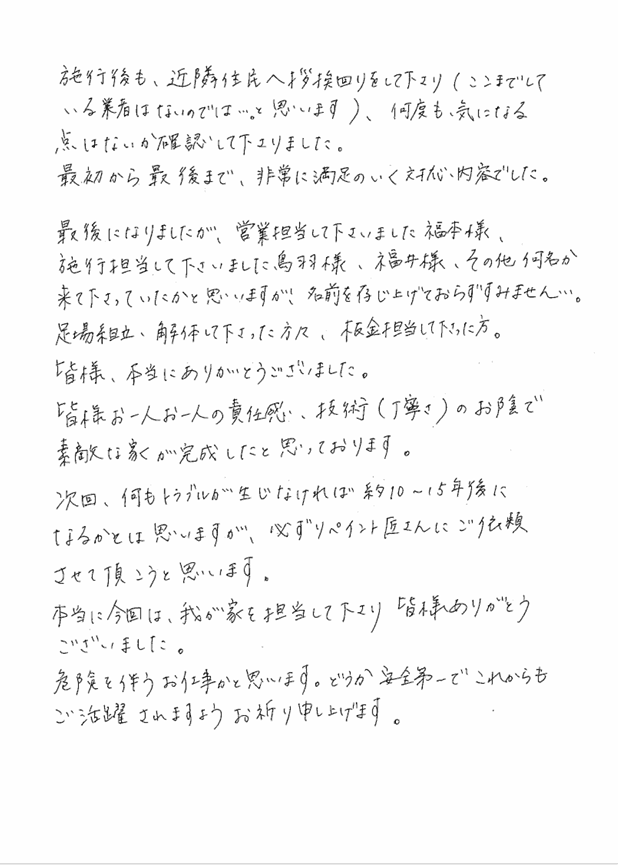 施行後も、近隣住民へ挨拶回りをして下さり(ここまでして
いる業者はないのでは…。と思います)、何度も、気になる
点はないか確認して下さりました。
最初から最後まで、非常に満足のいく対応、内容でした。
最後になりましたが、営業担当して下さいました福本様、
施行担当して下さいました鳥羽様、福井様、その他何名か
来て下さっていたかと思いますが、名前を存じ上げておらずすみません…。
足場組立、解体して下さった方々、板金担当して下さった方。
皆様、本当にありがとうございました。
皆様お一人お一人の責任感、技術(丁寧さ)のお陰で
素敵な家が完成したと思っております。
次回、何もトラブルが生じなければ約10~15年後に
なるかとは思いますが、必ずリペイント匠さんにご依頼
させて頂こうと思います。
本当に今回は、我が家を担当して下さり皆様ありがとう
ございました。
危険を伴うお仕事かと思います。どうか安全第一でこれからも
ご活躍されますようお祈り申し上げます。